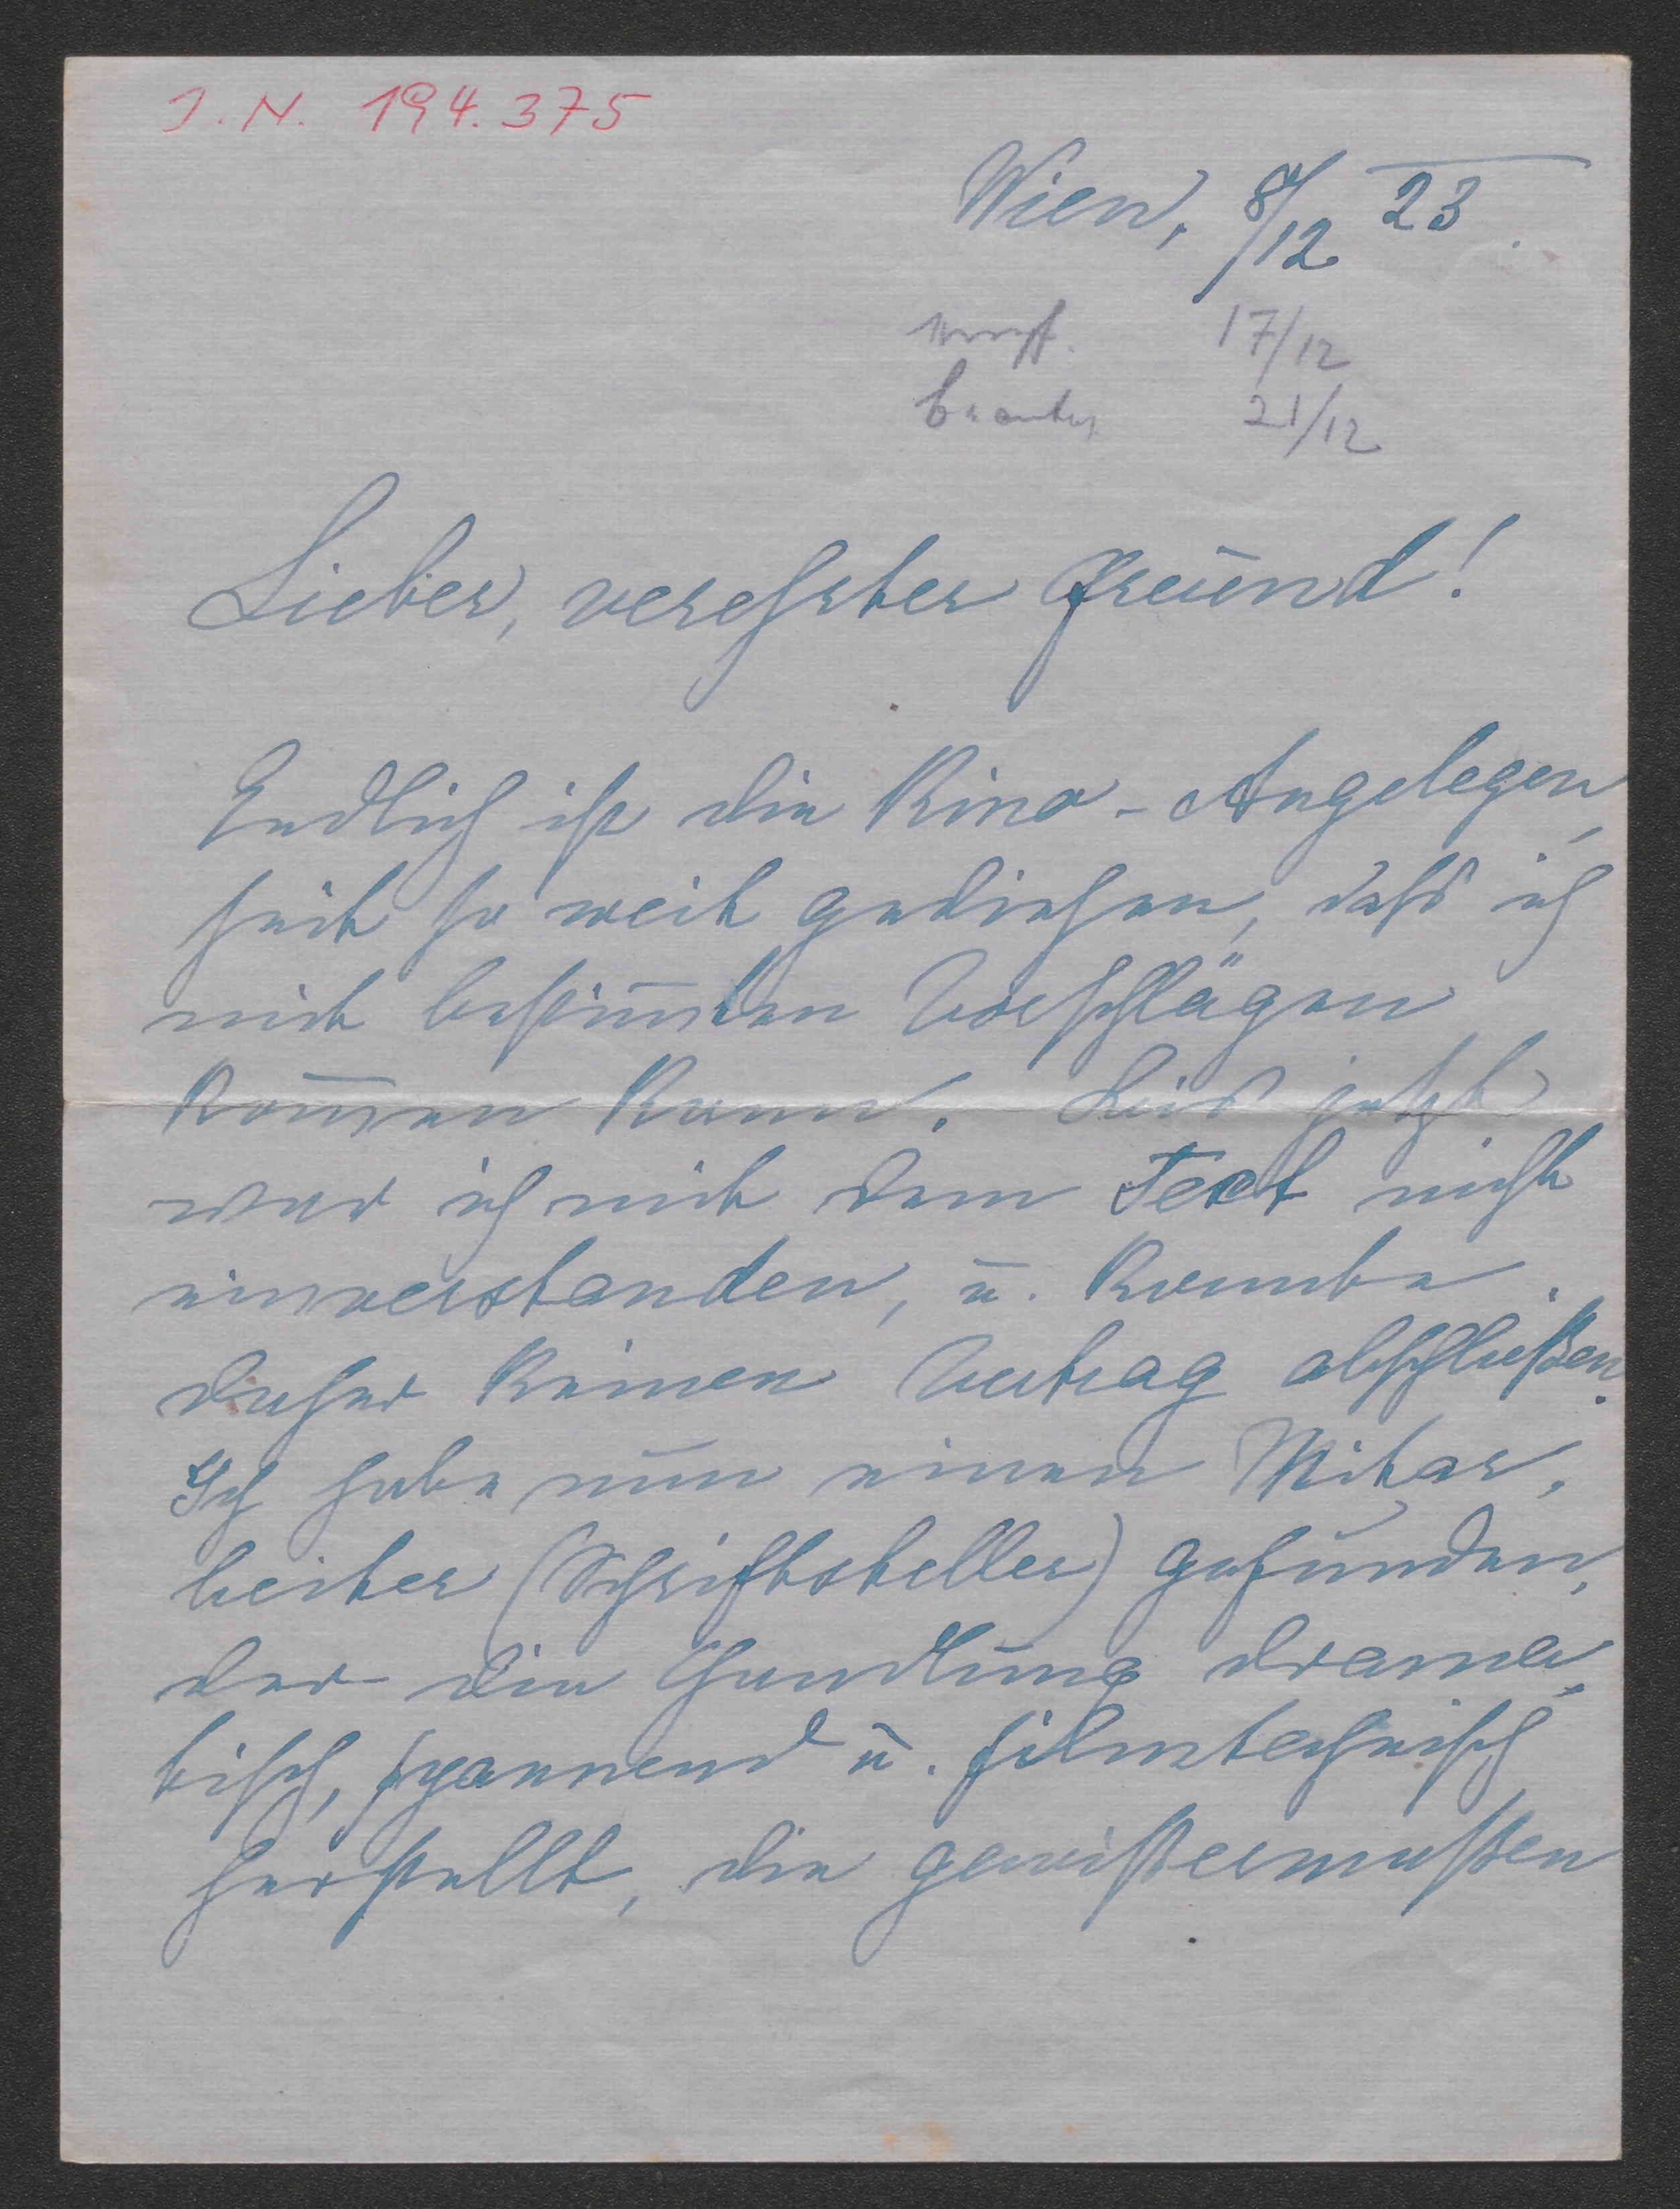 J. N. 194.375
Wien, 8/12 23.
17/12
beantw 21/12
Lieber, verehrter Freund!
Endlich ist die Kino-Angelegen-
heit so weit gediehen, dass ich
mit bestim̄ten Vorschlägen
kom̄en kann. Bis jetzt
war ich mit dem Text nicht
einverstanden, u. konnte
daher keinen Vertrag abschließen.
Ich habe nun einen Mitar-
beiter (Schriftsteller) gefunden,
der die Handlung drama-
tisch, spannend u. filmtechnisch
herstellt, die gewißermaßen